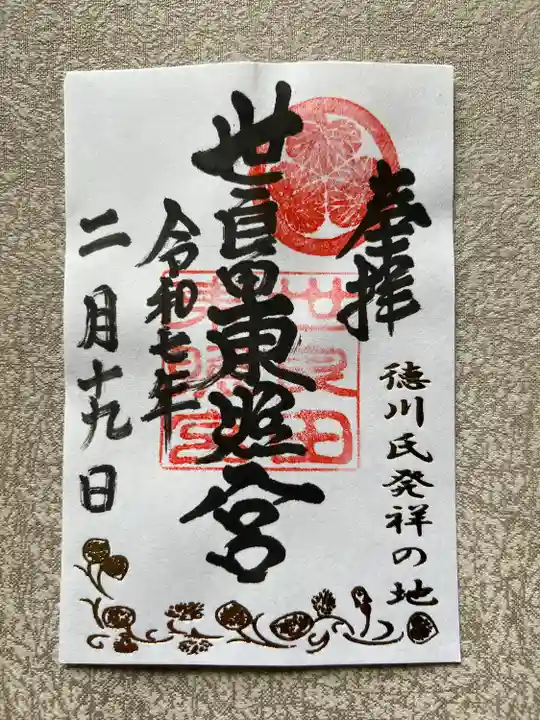 奉拝
徳川氏発祥の地
世良田東照宮
世良田
東照宮
令和七年
二月十九日